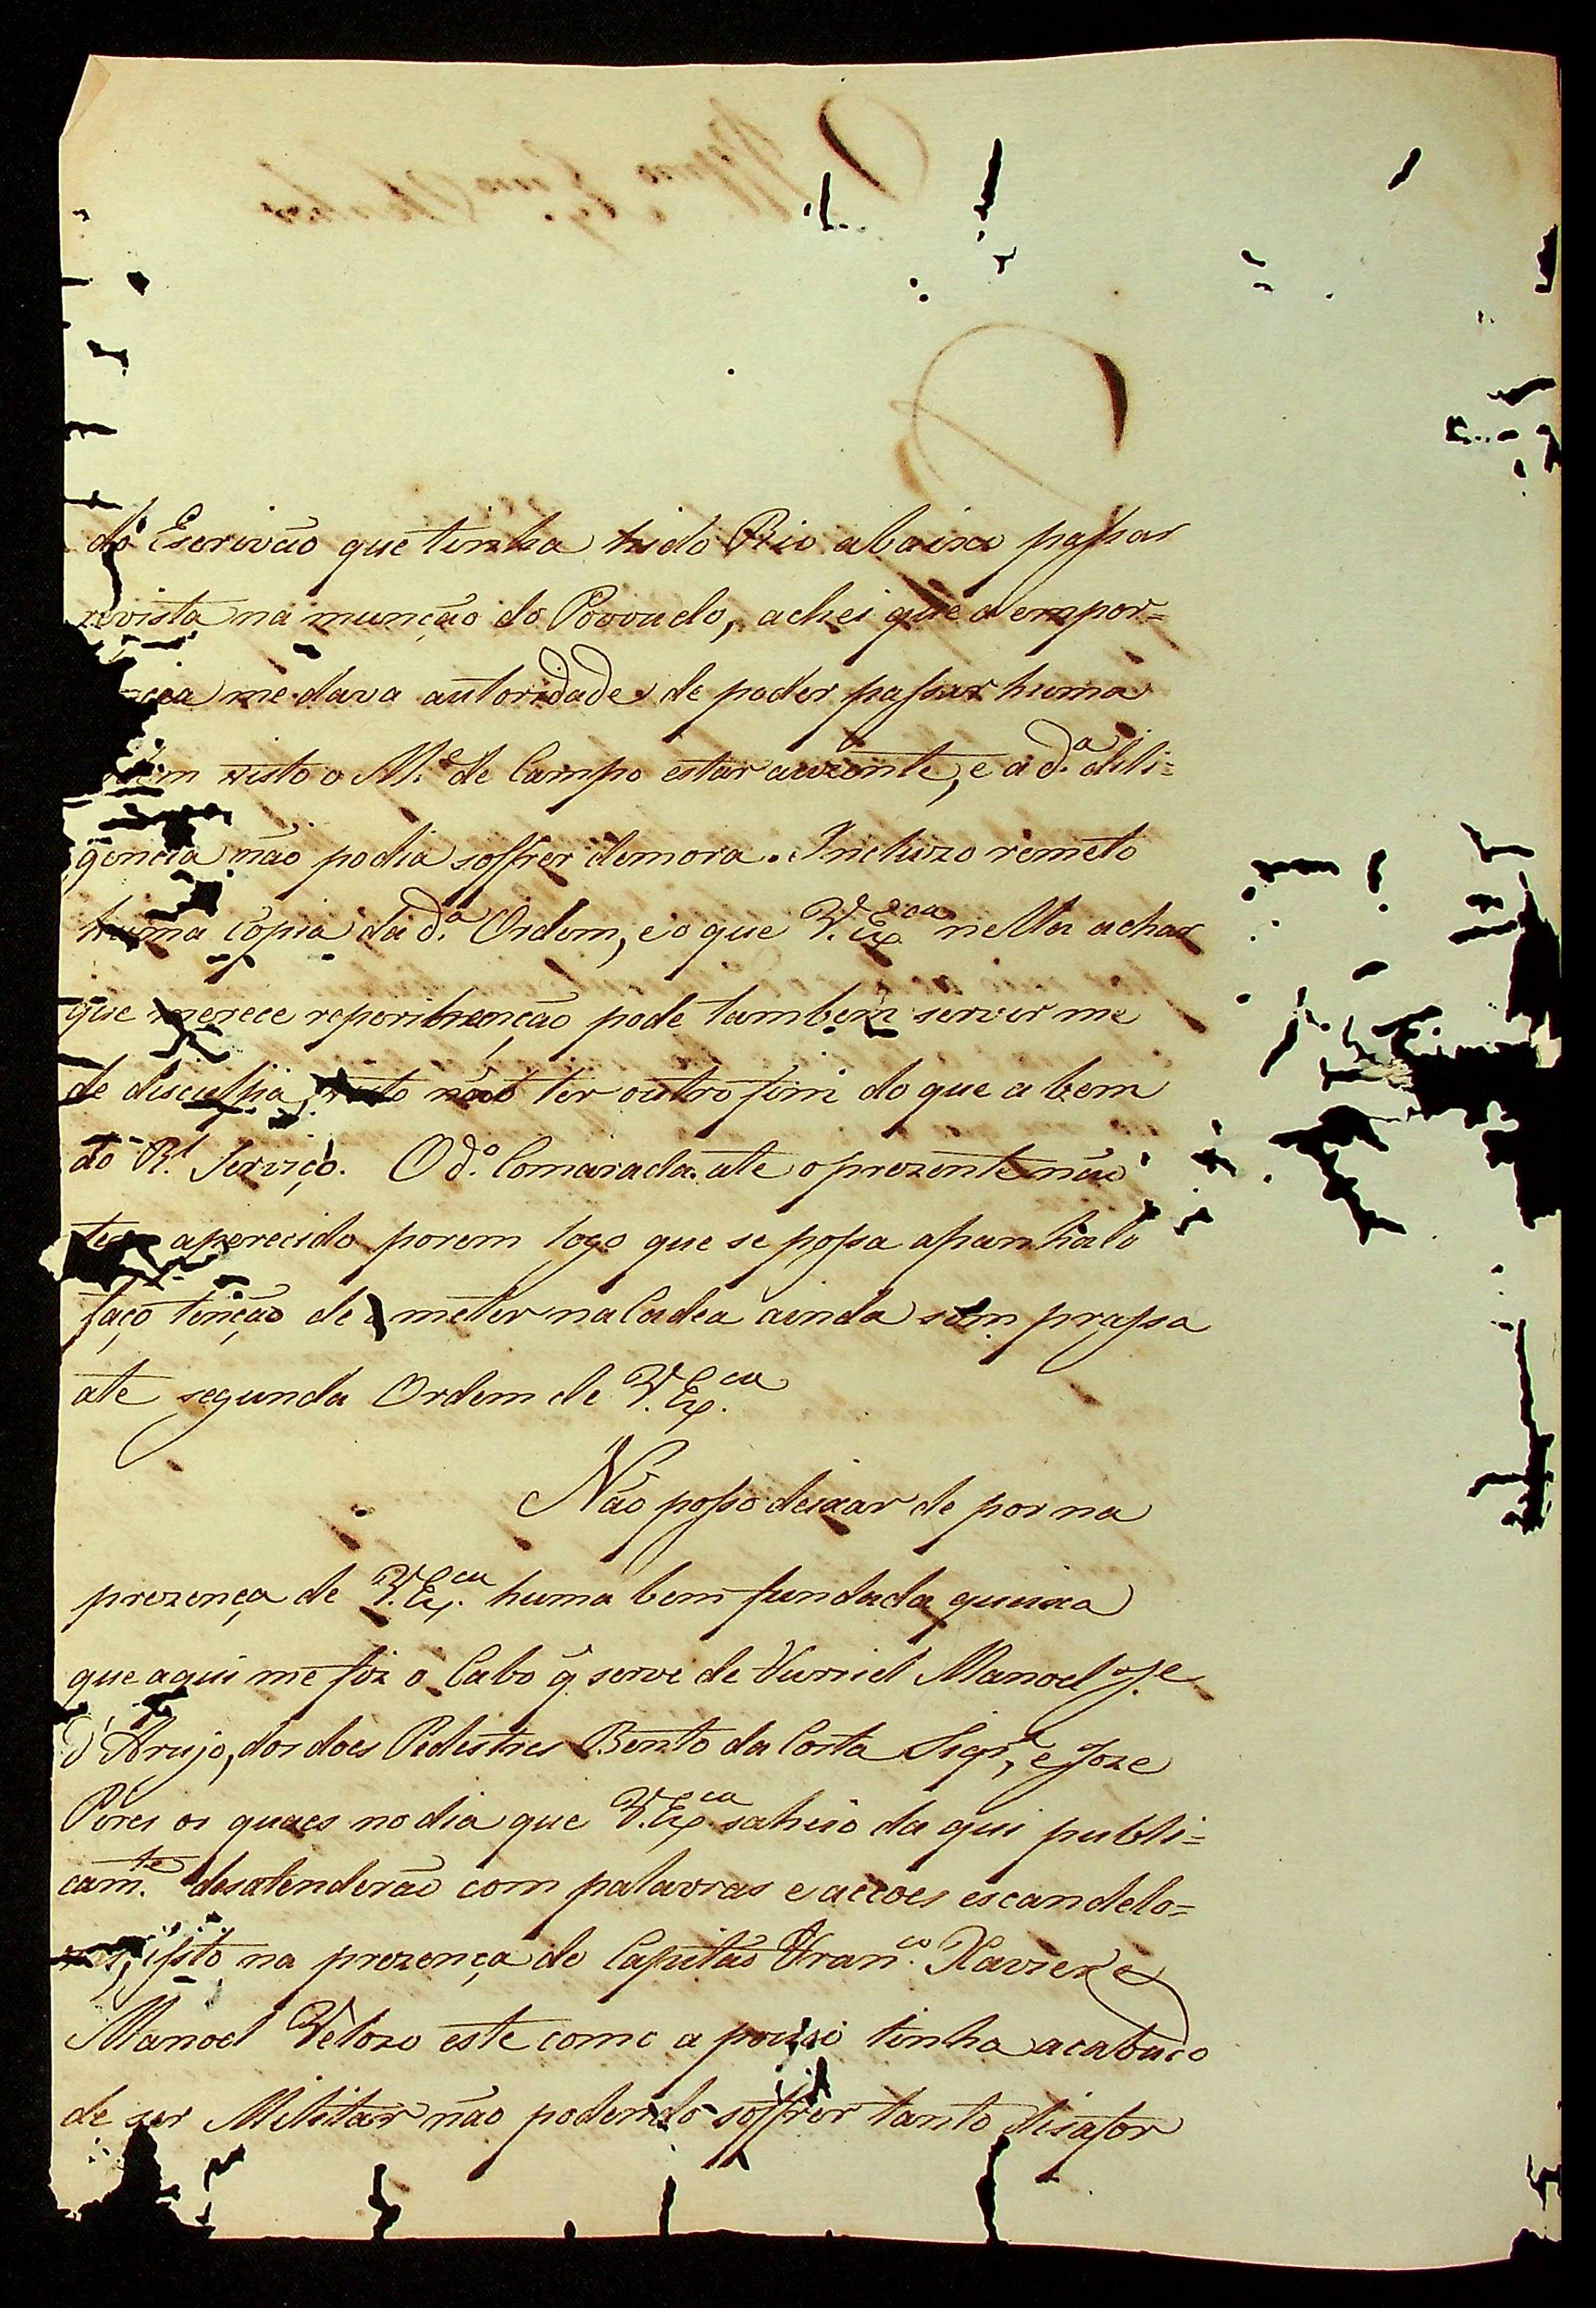 do Escrivão que tinha hido Rio abaixo passar
revista na munção do Povoado, achei que a empor=
me dava autoridade de poder passar huma
visto o M.e de Campo estar auzente, e a d.a dili=
gencia não podia soffrer demora. Incluzo remeto
huma copia da d.a Ordem, e o que V. Ex.cia nella achar
que merece reprihenção pode tambem servir me
de disculpa, visto não ter outro fim do que a bem
do R.l Serviço. O d.o Comarada ate o prezente não
tem aparecido porem logo que se possa apanhalo
faço tenção de meter na Cadea ainda sem prassa
ate segunda Ordem de V. Ex.cia
Não posso deixar de por na
prezença de V. Ex.cia huma bem fundada queixa
que aqui me fez o Cabo q̃ serve de Furriel Manoel J.e
d'Arujo, dos does Pedestres Bento da Costa Siqr.a, e Joze
Pires os quaes no dia que V. Ex.cia sahio daqui publi=
cam.te desatenderão com palavras e accoes escandelo=
zas, isto na prezença do Capitão Fran.co Xavier e
Manoel Velozo este como a pouco tinha acabado
de ser Militar não podendo soffrer tanto disafor